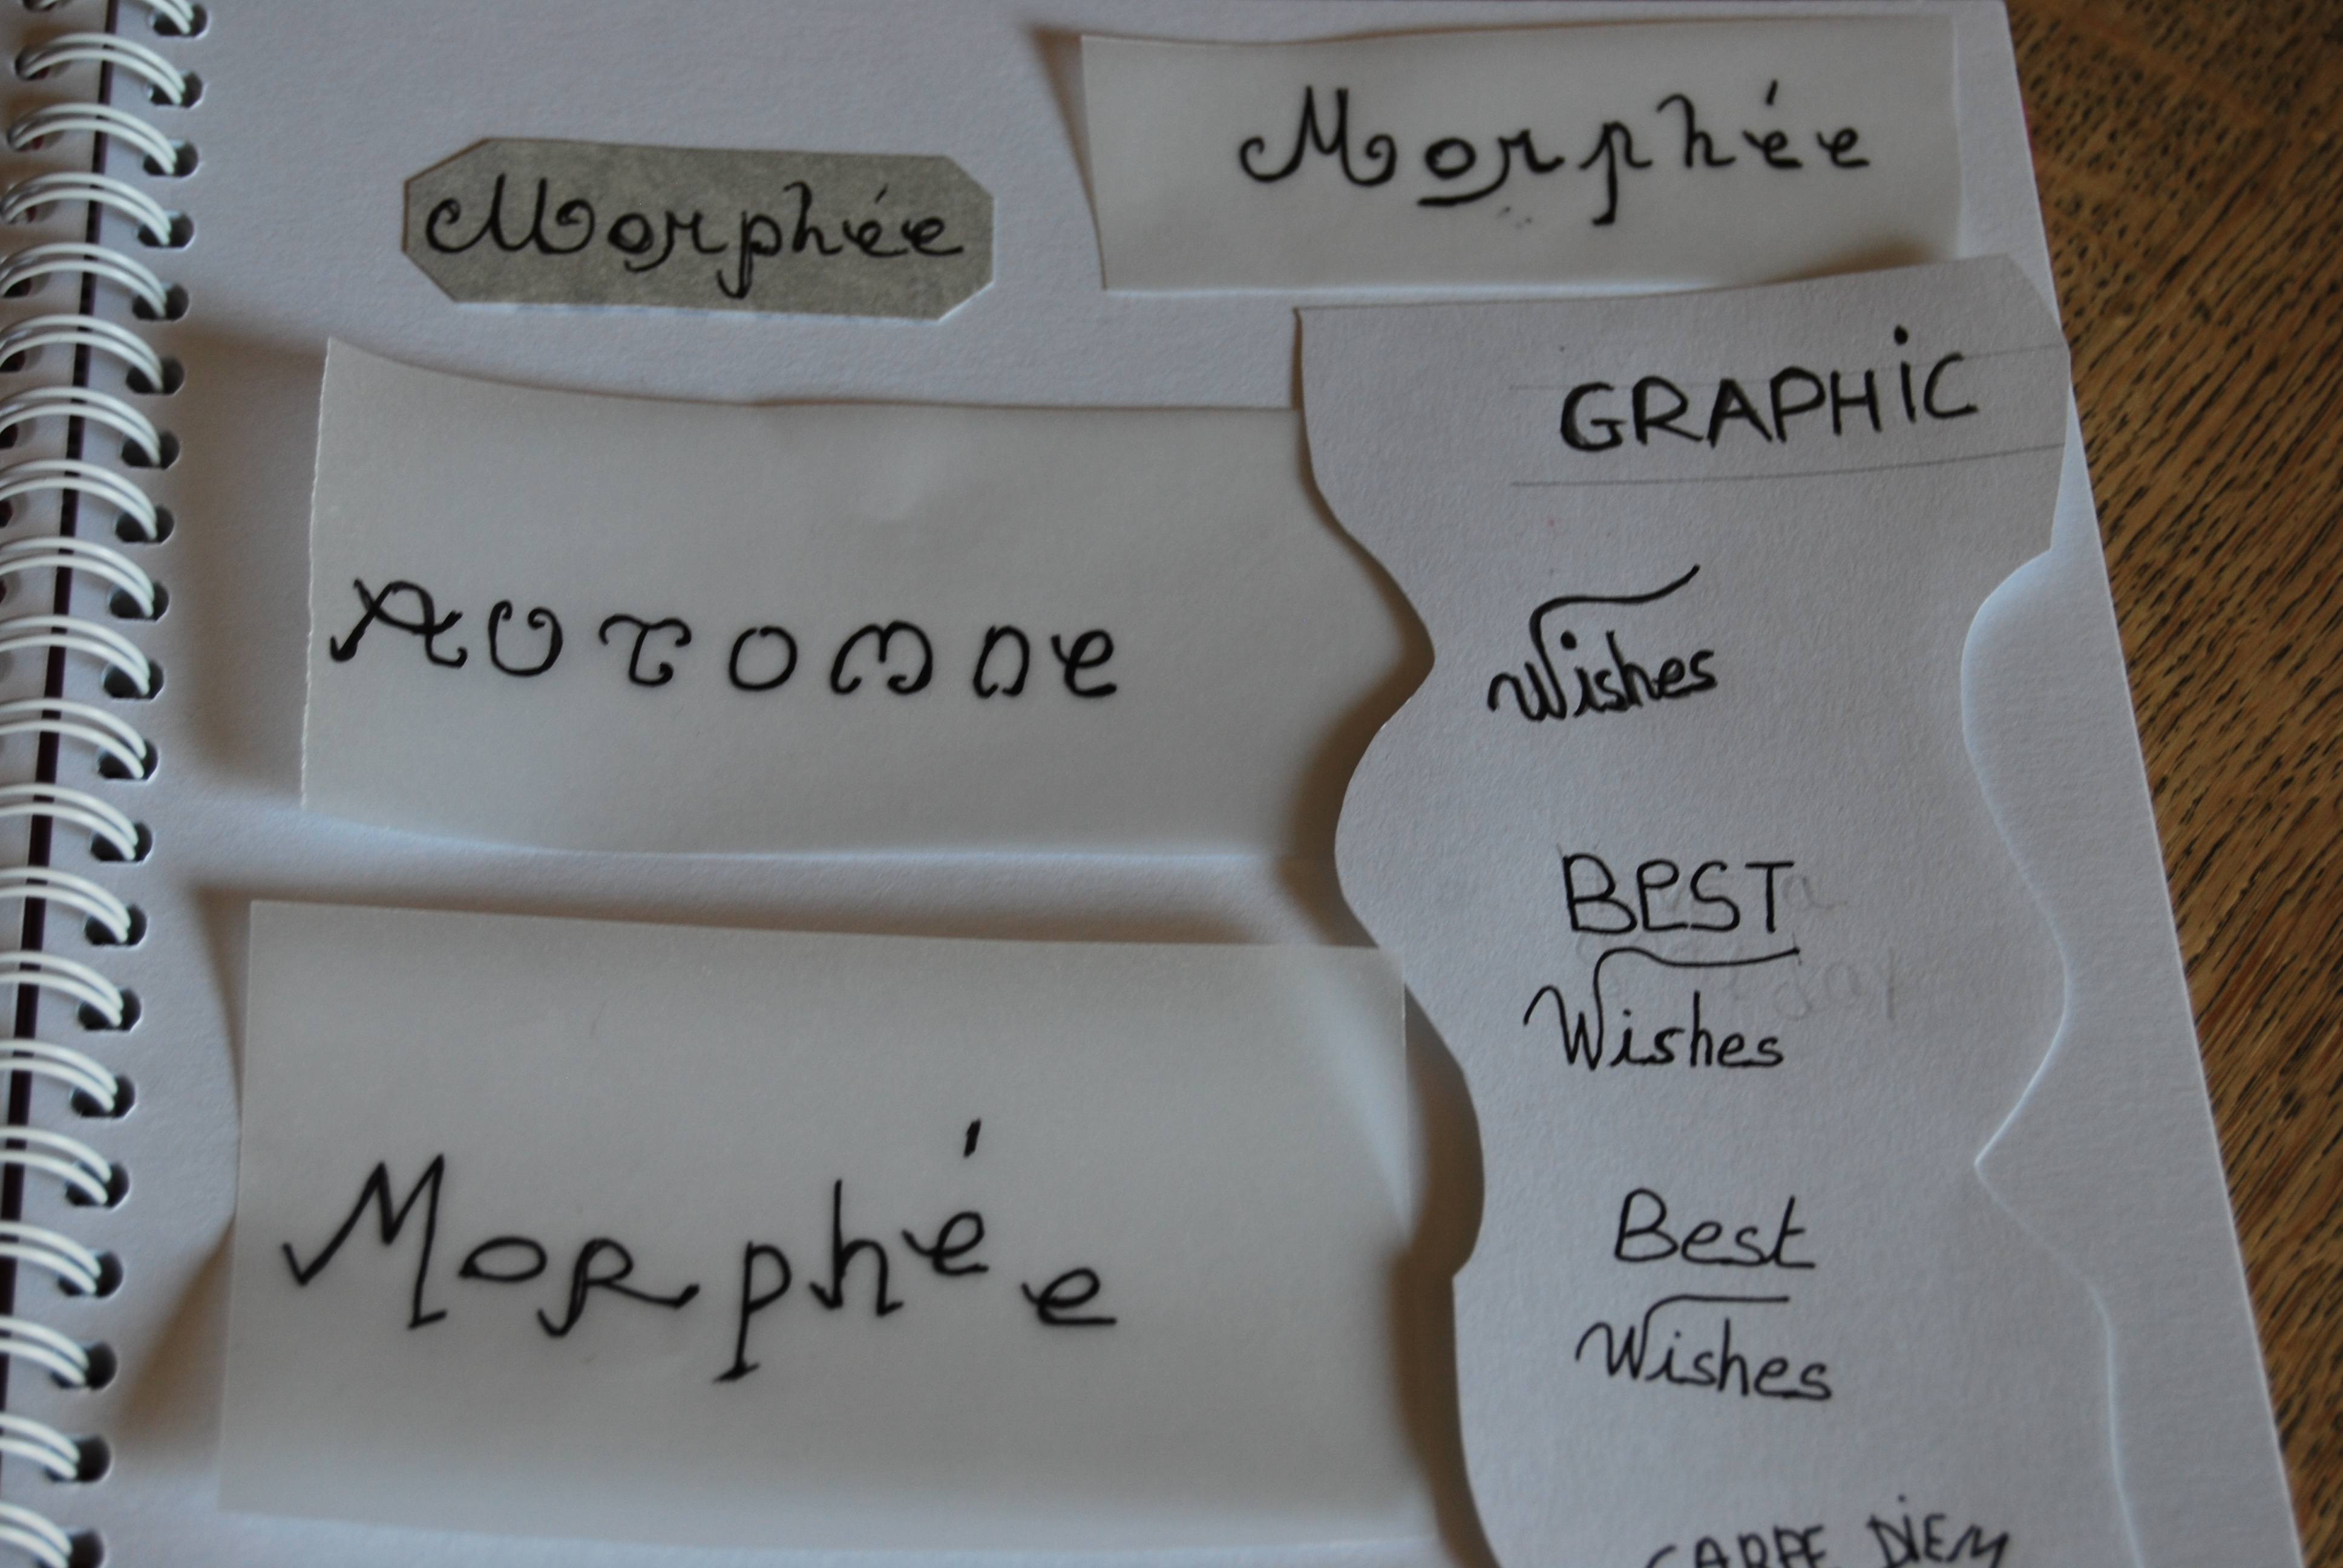 Morphée
Morphée
GRAPHiC
Wishes
AUTOMNe
BeST
Wishes
Morphée
Best
Wishes
CARPE DiEM